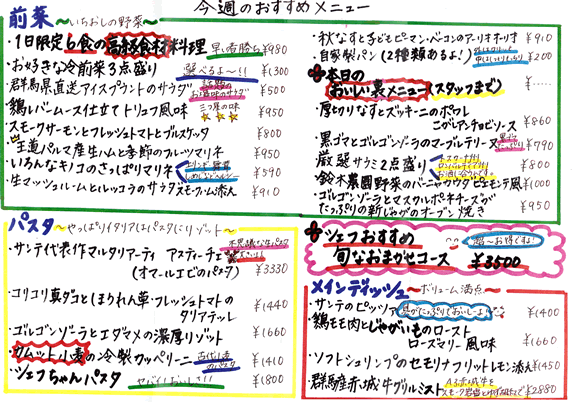 今週のおすすめメニュー
前菜 〜いちおしの野菜〜
・1日限定6食の高級食材料理 早い者勝ち ¥980
・お好きな冷前菜3点盛り 選べるよ〜!! ¥1,300
・群馬県直送アイスプラントのサラダ 話題のお野菜のサラダ ¥500
・鶏レバームース仕立てトリュフ風味 三つ星の味 ¥900
・スモークサーモンとフレッシュトマトとブルスケッタ ¥800
・王道パルマ産生ハムと季節のフルーツマリネ ¥950
・いろんなキノコのさっぱりマリネ ¥590
・生マッシュルームとルッコラのサラダ スモークハム添え ¥910
・秋なすと子どもピーマン・ベーコンのアーリオオーリオ ¥910
・自家製パン(2種類あるよ!) ¥200
本日の
おいしい裏メニュー(スタッフまで) ¥……
・厚切りなすとズッキーニのポワレ
こがしアンチョビソース ¥860
・黒ゴマとゴルゴンゾーラのマーブルテリーヌ ¥790
・厳選サラミ2点盛り ¥800
・鈴木農園野菜のバーニャカウダ ピエモンテ風 ¥1000
・ゴルゴンゾーラとマスカルポーネチーズが
たっぷりの新じゃがのオーブン焼き ¥950
パスタ 〜やっぱりイタリアはパスタにリゾット〜
・サンテ代表作マルタリアーティ アスティーチェ 不思議な生パスタ
(オマールエビのパスタ) ¥3330
・コリコリ真ダコとしまりれん草・フレッシュトマトの
タリアテッレ ¥1440
・ゴルゴンゾーラとエダマメの濃厚リゾット ¥1660
・カムット小麦の冷製カッペリーニ 古代小麦のパスタ ¥1410
・シェフちゃんパスタ ヤバイ!おいしさ!! ¥1800
シェフおすすめ 超〜お得ですよ!
旬なおまかせコース ¥3500
メインディッシュ 〜ボリューム満点〜
・サンテのピッツァ 具がたっぷりでおいしーよ! ¥1400
・鶏モモ肉とじゃがいものロースト
ローズマリー風味 ¥1660
・ソフトシュリンプのセモリナフリットレモン添え ¥1450
・群馬産赤城牛グリルミスト ¥2880